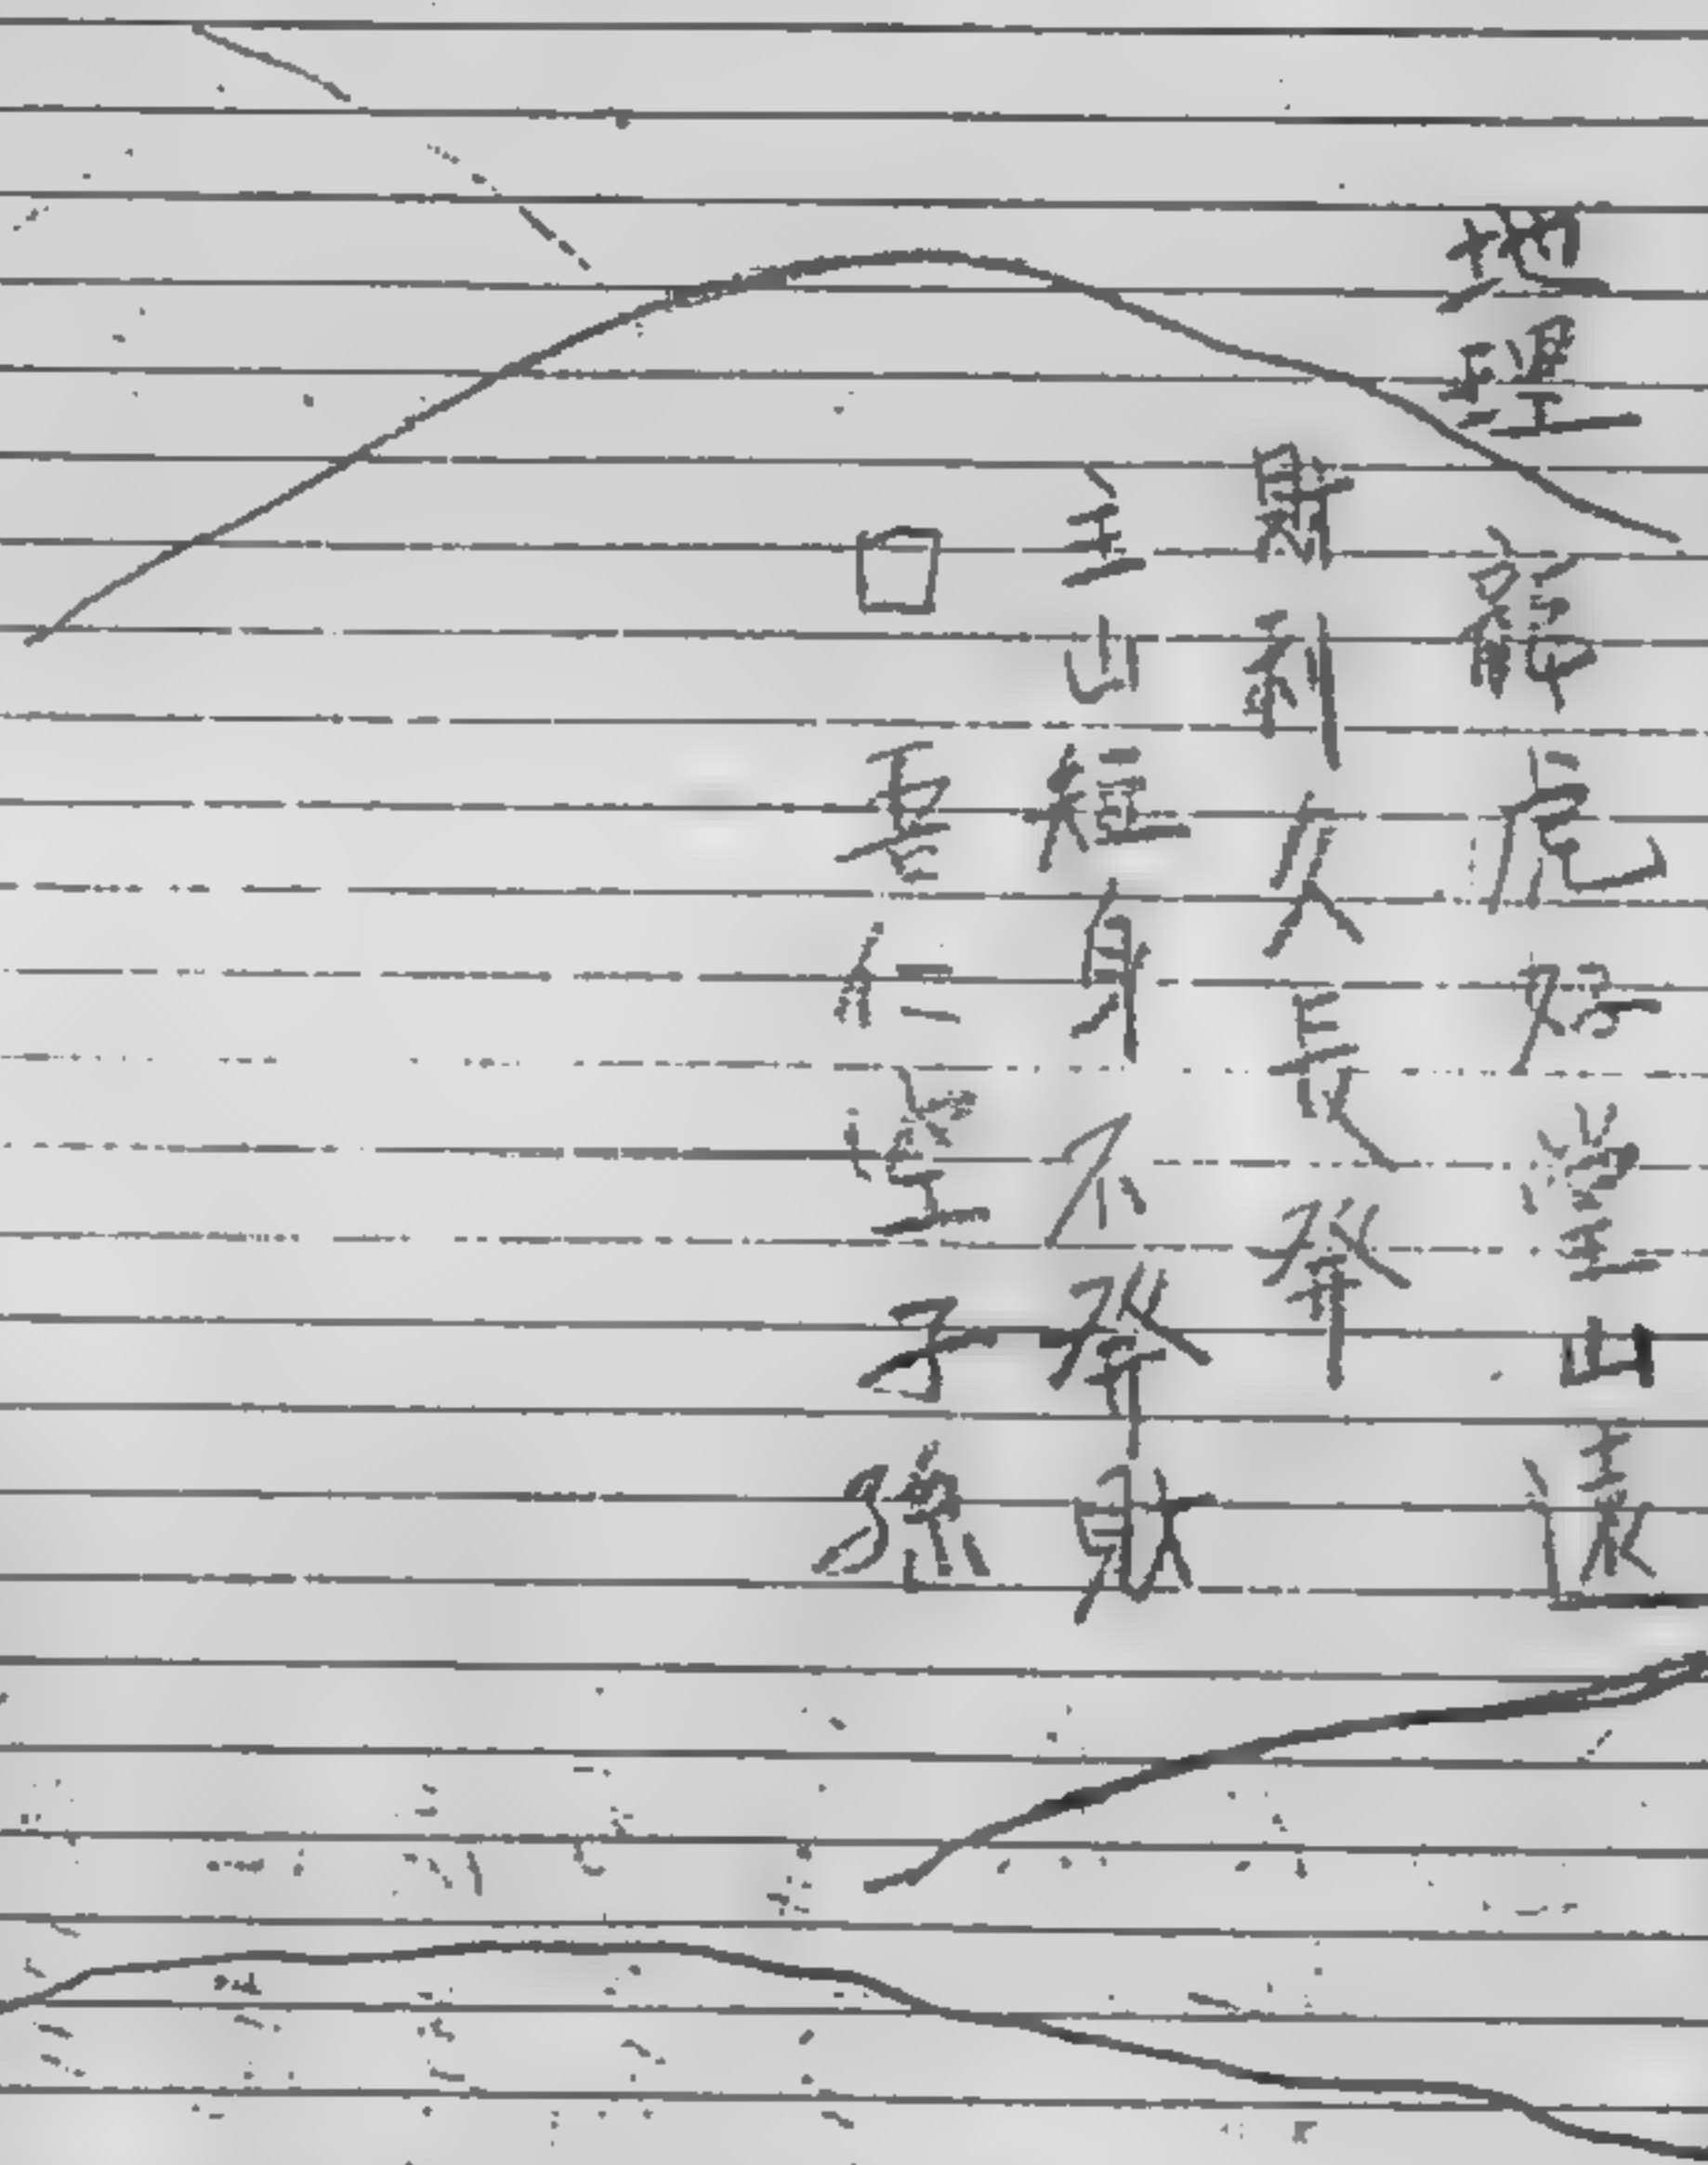 地理龍虎好堂山遠
財利久長發
主山短身不發
口仁子孫